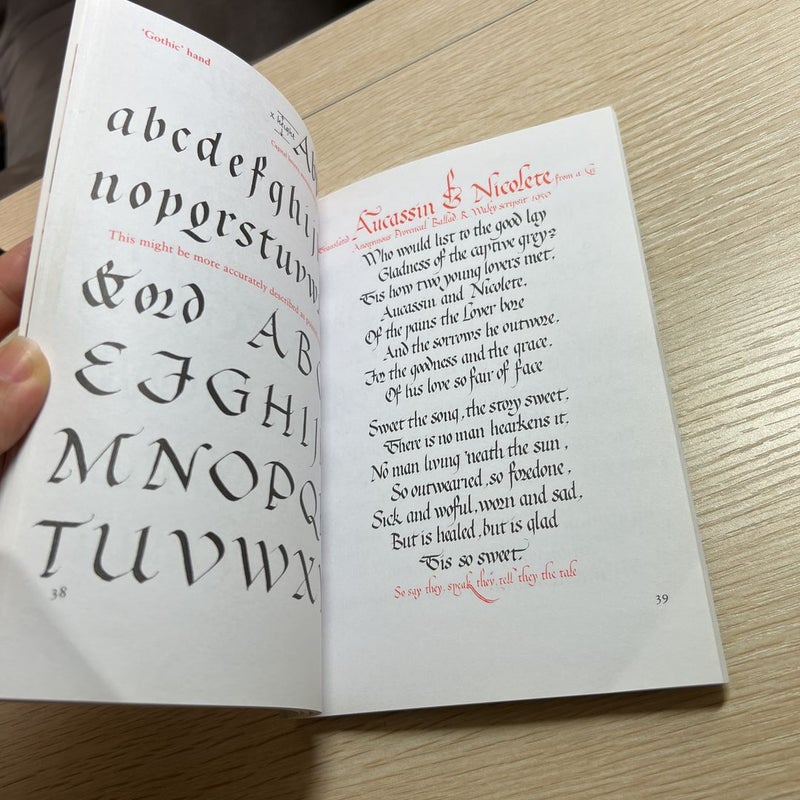 'Gothic' hand
x height
Ab
Capital letters
abcdefghi
nopqrstuvw
This might be more accurately described as
& or d
ABC
EFGHIJ
MNOPQ
TUVWX
38
Aucassin & Nicolete from a
translated Anonymous Provencal Ballad R Wiley scripsit 1950
Who would list to the good lay
Gladness of the captive grey?
Tis how two young lovers met,
Aucassin and Nicolete,
Of the pains the Lover bore
And the sorrows he outwore,
For the goodness and the grace,
Of his love so fair of face
Sweet the song, the story sweet,
There is no man hearkens it,
No man living 'neath the sun,
So outwearied, so foredone,
Sick and woful, worn and sad,
But is healed, but is glad
Tis so sweet.
So say they, speak they, tell they the tale
39